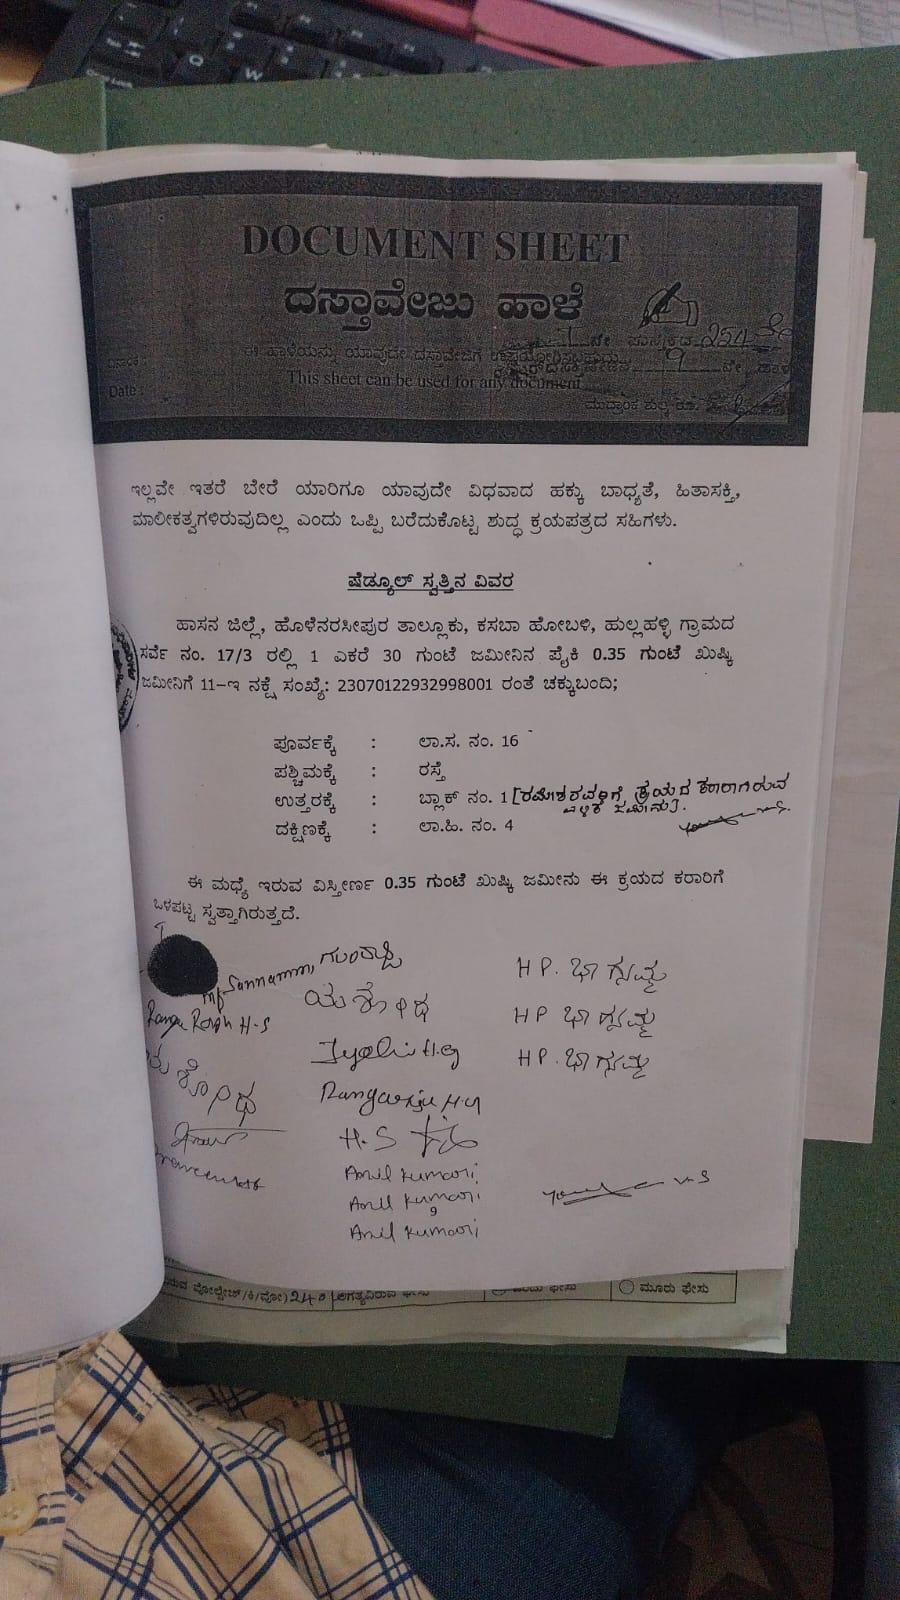 DOCUMENT SHEET
ದಸ್ತಾವೇಜು ಹಾಳೆ
I ನೇ ಪುಸ್ತಕದ 254 ನೇ
ಈ ಹಾಳೆಯನ್ನು ಯಾವುದೇ ದಸ್ತಾವೇಜಿಗೆ ಉಪಯೋಗಿಸಬಹುದು
9 ನೇ ಹಾಳೆ
This sheet can be used for any document
ದಿನಾಂಕ :
Date :
ಮುದ್ರಾಂಕ ಶುಲ್ಕ ರೂ.
ಇಲ್ಲವೇ ಇತರೆ ಬೇರೆ ಯಾರಿಗೂ ಯಾವುದೇ ವಿಧವಾದ ಹಕ್ಕು ಬಾಧ್ಯತೆ, ಹಿತಾಸಕ್ತಿ,
ಮಾಲೀಕತ್ವಗಳಿರುವುದಿಲ್ಲ ಎಂದು ಒಪ್ಪಿ ಬರೆದುಕೊಟ್ಟ ಶುದ್ಧ ಕ್ರಯಪತ್ರದ ಸಹಿಗಳು.
ಷೆಡ್ಯೂಲ್ ಸ್ವತ್ತಿನ ವಿವರ
ಹಾಸನ ಜಿಲ್ಲೆ, ಹೊಳೆನರಸೀಪುರ ತಾಲ್ಲೂಕು, ಕಸಬಾ ಹೋಬಳಿ, ಹುಲ್ಲಹಳ್ಳಿ ಗ್ರಾಮದ
ಸರ್ವೆ ನಂ. 17/3 ರಲ್ಲಿ 1 ಎಕರೆ 30 ಗುಂಟೆ ಜಮೀನಿನ ಪೈಕಿ 0.35 ಗುಂಟೆ ಖುಷ್ಕಿ
ಜಮೀನಿಗೆ 11-ಇ ನಕ್ಷೆ ಸಂಖ್ಯೆ: 23070122932998001 ರಂತೆ ಚಕ್ಕುಬಂದಿ;
ಪೂರ್ವಕ್ಕೆ : ಲಾ.ಸ. ನಂ. 16
ಪಶ್ಚಿಮಕ್ಕೆ : ರಸ್ತೆ
ಉತ್ತರಕ್ಕೆ : ಬ್ಲಾಕ್ ನಂ. 1 [ರಮೇಶರವರಿಗೆ ಕ್ರಯದ ಕರಾರಾಗಿರುವ
ಜಮೀನು].
ದಕ್ಷಿಣಕ್ಕೆ : ಲಾ.ಹಿ. ನಂ. 4
ಈ ಮಧ್ಯೆ ಇರುವ ವಿಸ್ತೀರ್ಣ 0.35 ಗುಂಟೆ ಖುಷ್ಕಿ ಜಮೀನು ಈ ಕ್ರಯದ ಕರಾರಿಗೆ
ಒಳಪಟ್ಟ ಸ್ವತ್ತಾಗಿರುತ್ತದೆ.
Sannamm,
H P. ಭಾಗ್ಯಮ್ಮ
H-S
ಯಶೋಧ
H P ಭಾಗ್ಯಮ್ಮ
Jyothi H.G
H P. ಭಾಗ್ಯಮ್ಮ
ಯಶೋಧ
Rangaraju H.G
H.S
Anil kumari
Anil kumari
9
Anil kumari
240
ಮೂರು ಫೇಸು